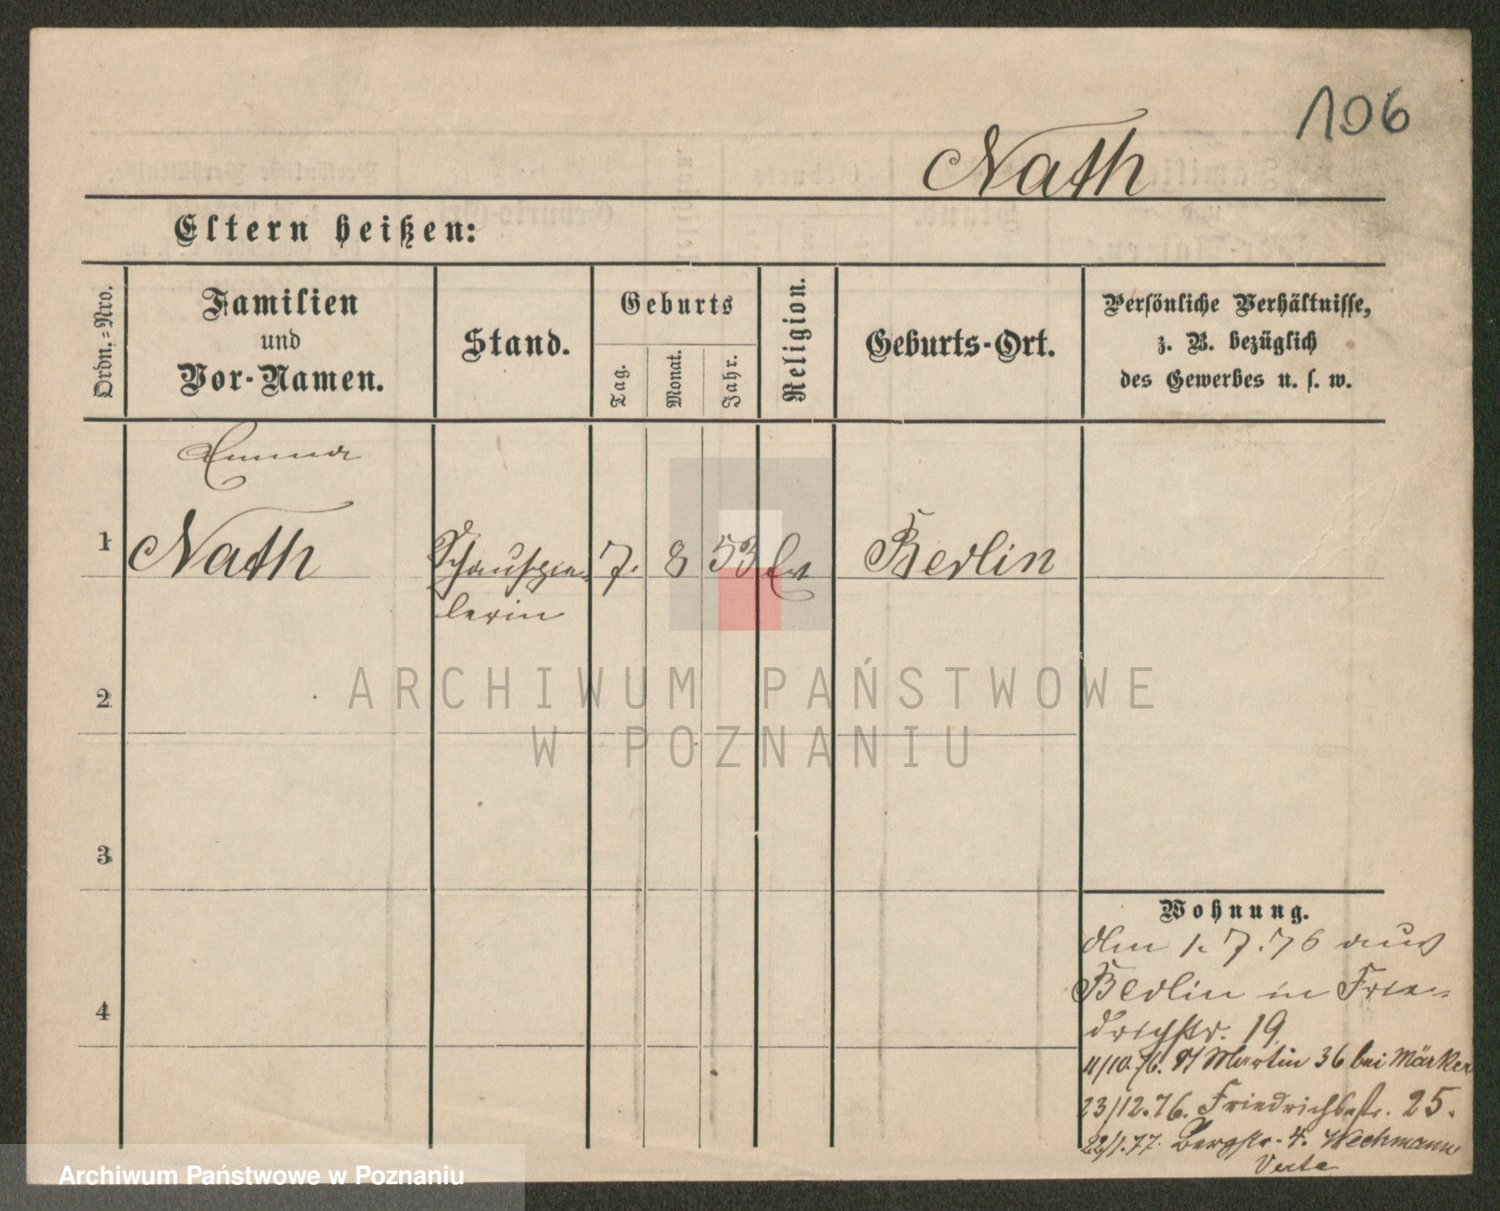 106
Nath
Eltern heißen:
Ordn.-Nro.
Familien
und
Vor-Namen.
Stand.
Geburts
Tag.
Monat.
Jahr.
Religion.
Geburts-Ort.
Persönliche Verhältnisse,
z. B. bezüglich
des Gewerbes u. s. w.
Emma
1 Nath Schauspie- 7. 8 53 Ev Berlin
lerin
2
3
4
Wohnung.
den 1. 7. 76 aus
Berlin in Frie-
drichstr. 19
11/10. 76. St Martin 36 bei Märker
23/12. 76. Friedrichstr. 25.
22/1. 77. Bergstr. 4. Wechmann
Verte
ARCHIWUM PAŃSTWOWE
W POZNANIU
Archiwum Państwowe w Poznaniu